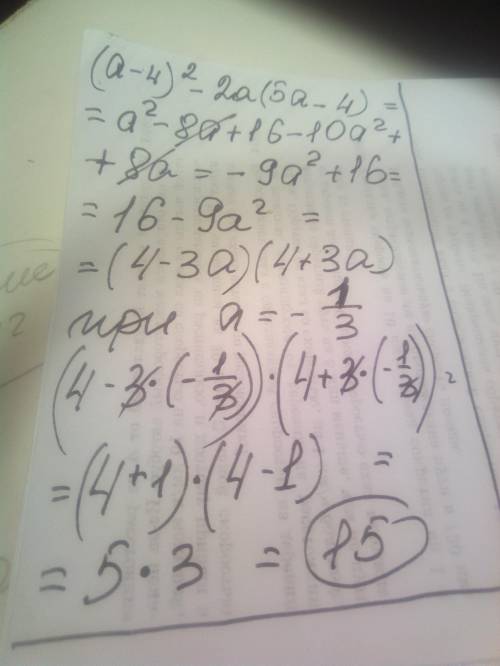 (a-4)² - 2a(5a-4) =
= a² - 8a + 16 - 10a² +
+ 8a = - 9a² + 16 =
= 16 - 9a² =
= (4-3a)(4+3a)
при a = - 1/3
(4 - 3·(-1/3))·(4 + 3·(-1/3)) =
= (4+1)·(4-1) =
= 5·3 = 15